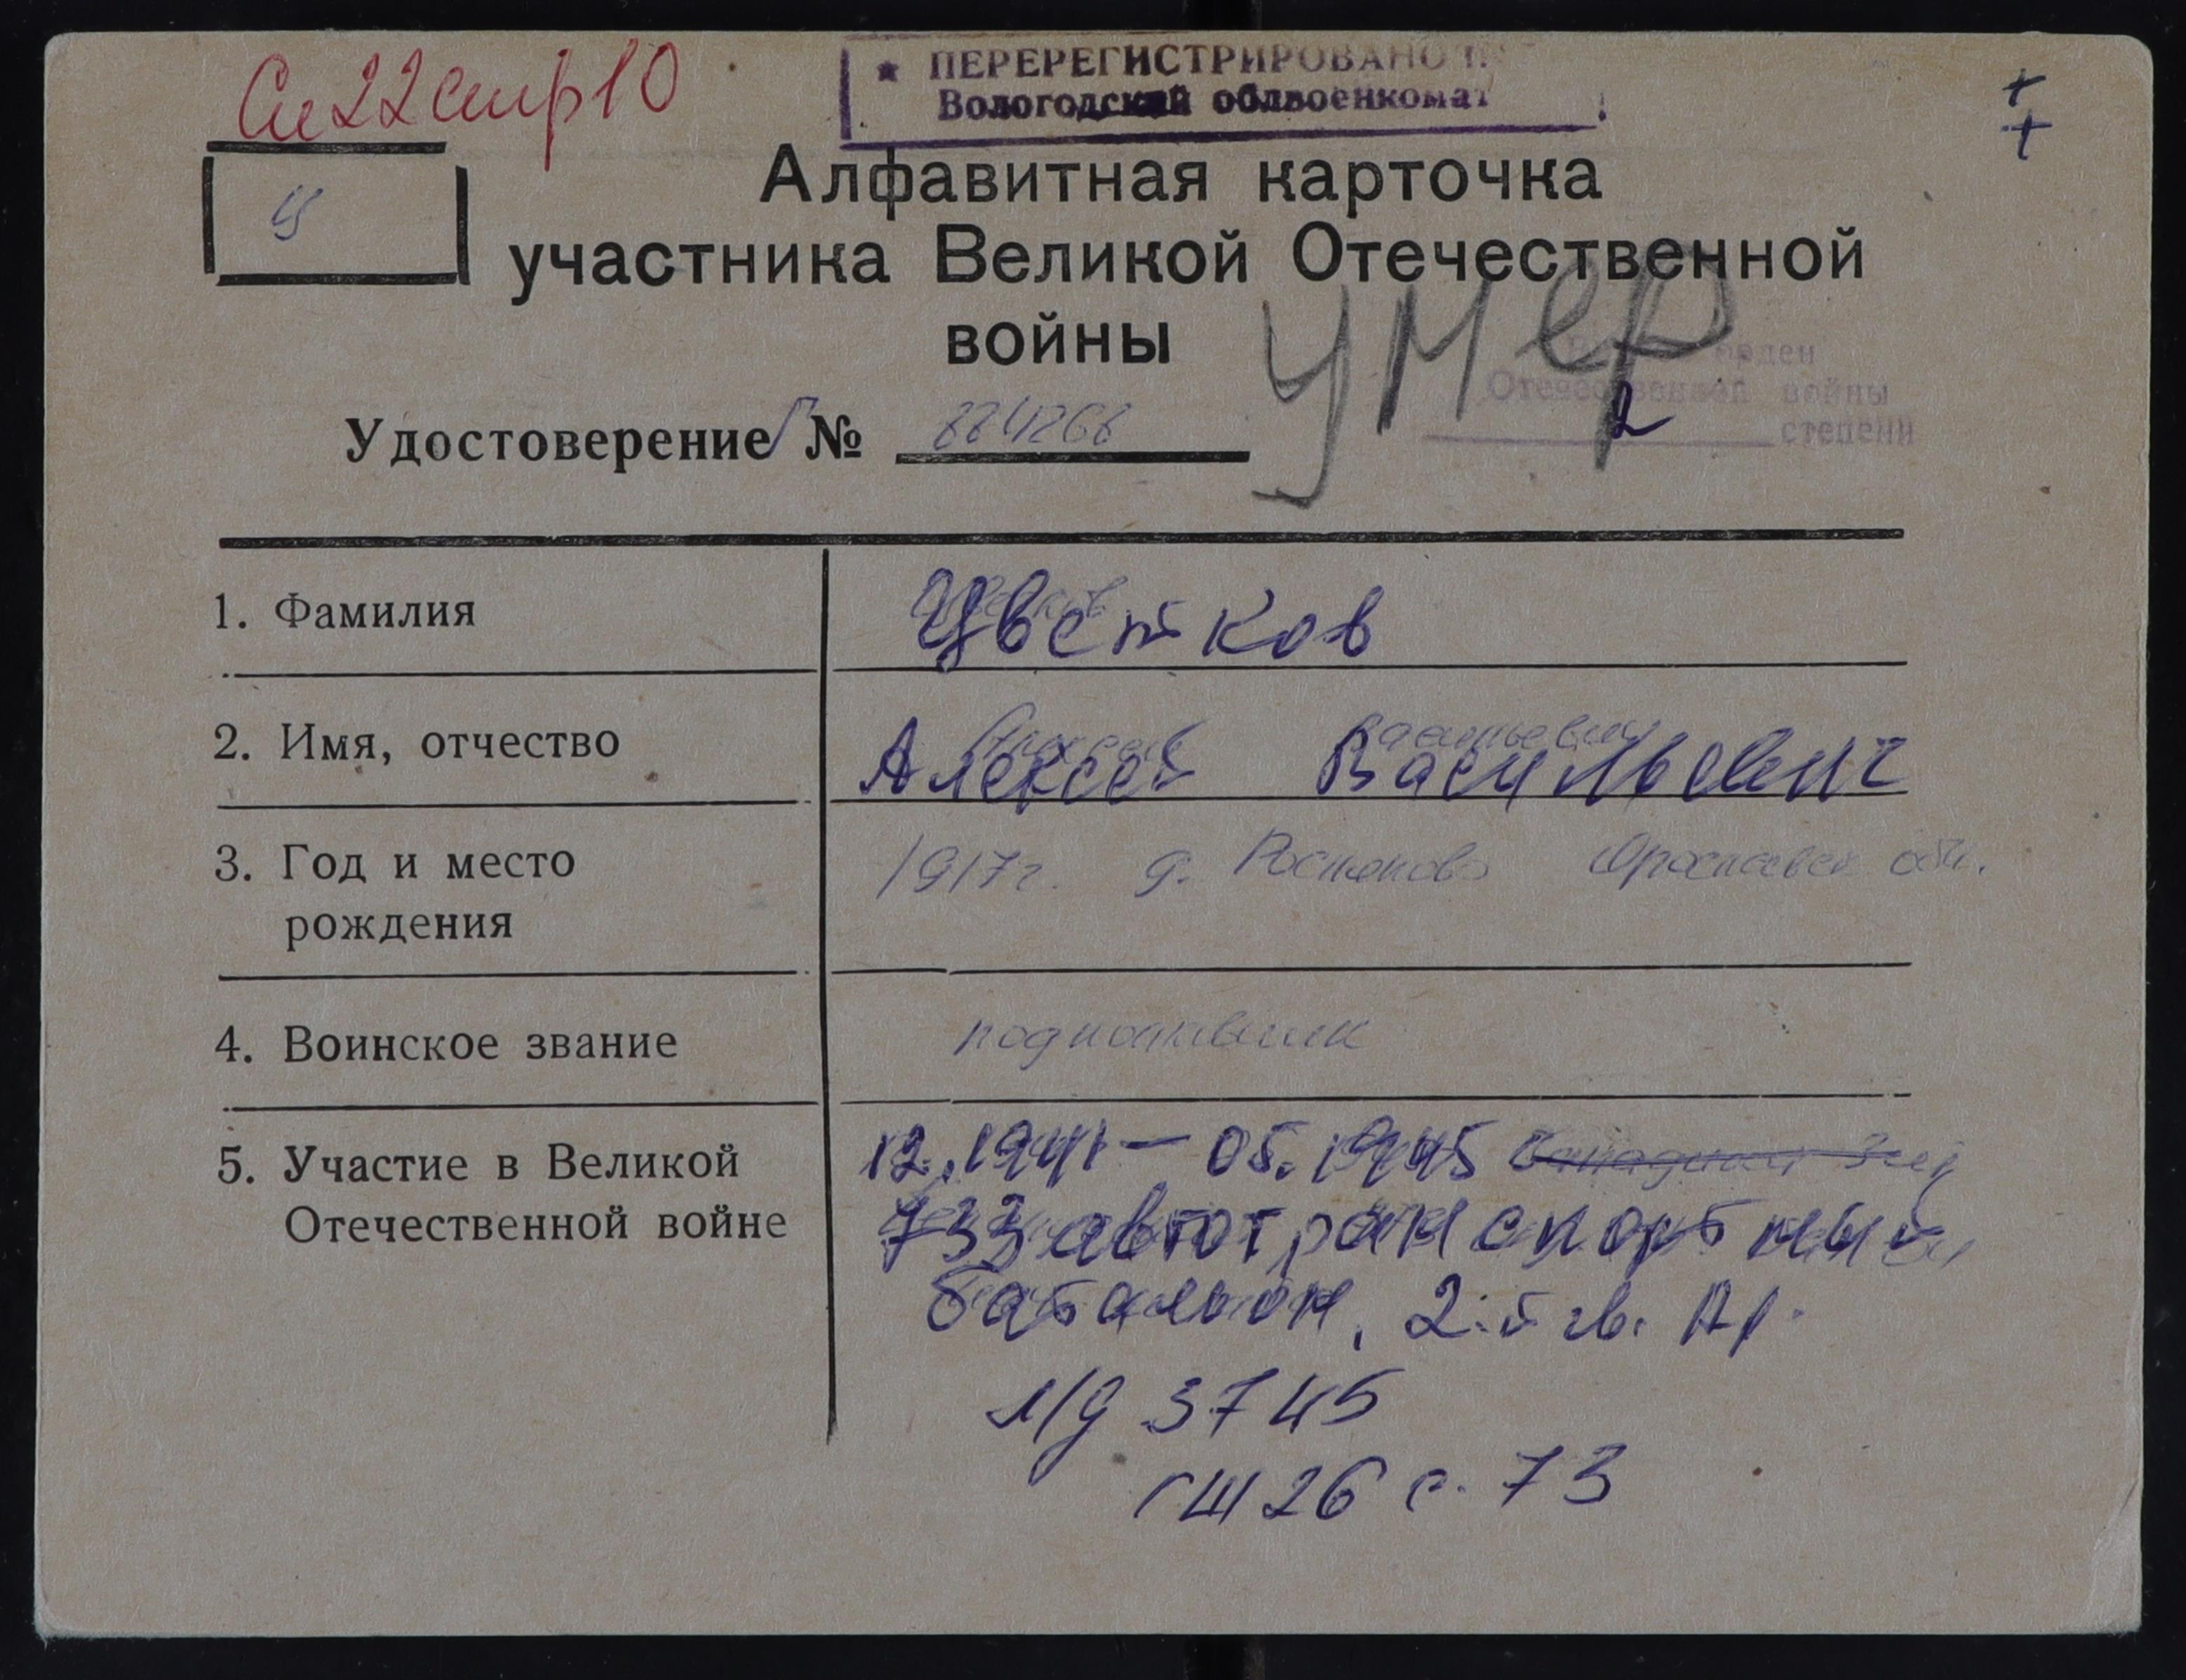 Сп 22 стр 10
ПЕРЕРЕГИСТРИРОВАНО
Вологодский облвоенкомат
Ц
Алфавитная карточка
участника Великой Отечественной
войны
умер
орден
Отечественной войны
2 степени
Удостоверение №
1. Фамилия
Цветков
2. Имя, отчество
Алексей Васильевич
3. Год и место
рождения
1917г. д.
4. Воинское звание
подполковник
5. Участие в Великой
Отечественной войне
12.1941 – 05.1945
733 автотранспортный
батальон, 2-й гв. Ар.
л/д 3745
ГШ 26 с. 73